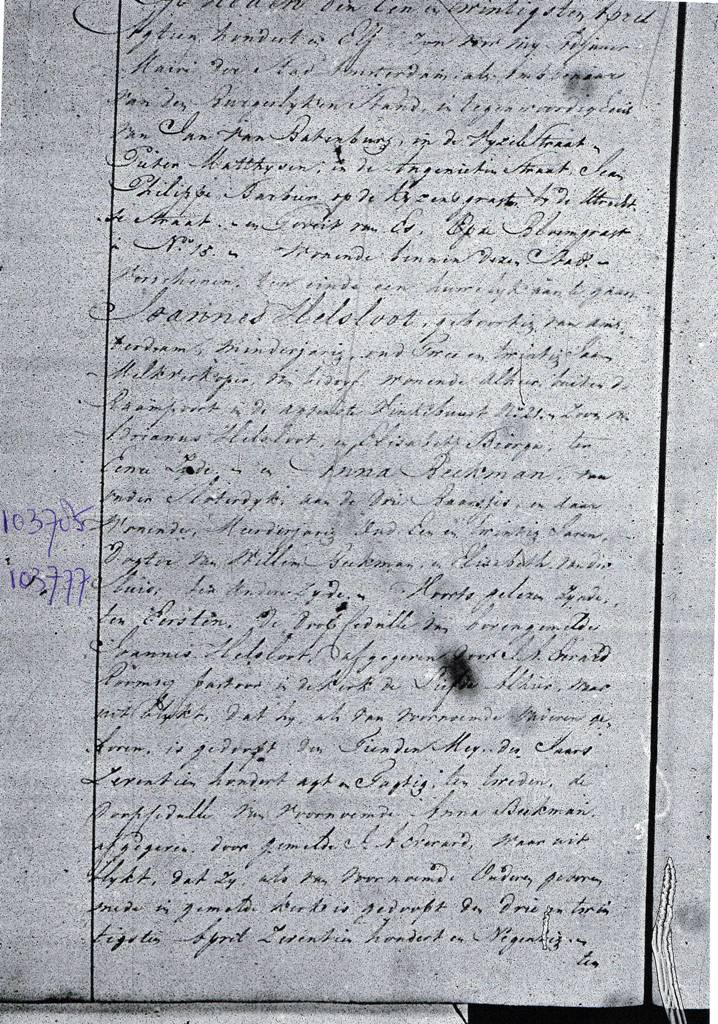 Op heden den Een en twintigsten April
Agtien hondert en Elf. Zyn voor my Adjunct
Maire der Stad Amsterdam, als Ambtenaar
van den Burgerlyken Stand, in tegenwoordigheid
van Jan van Batenburg, in de Vyzelstraat,
Pieter Matthysen, in de Angenieten Straat, Jean
Philippe Barbier, op de Kyzersgragt by de Utrecht
se Straat, en Gerrit van Es, Op de Bloemgragt
N.o 15. Wonende binnen dezen Stad.
Verschenen, ten einde een huwelyk aan te gaan
Joannes Helsloot, geboortig van Am
sterdam, minderjarig, oud Twee en twintig Jaaren
Melkverkoper, van bedryf, wonende Alhier, buiten de
Raampoort in de
Adrianus Helsloot, en Elisabeth ter
Eenre Zyde, en Anna Beekman, van
onder Sloterdyk, aan de drie Baarsjes, en daar
Wonende, Meerderjarig Oud Een en twintig Jaren,
Dogter van Willem Beekman, en Elisabeth van der
Sluis, ter Andere Zyde. Hoorts gelezen Zynde,
ten Eersten, De Doop Cedulle van bovengemelde
Joannes Helsloot, afgegeven door J. A. Everard
Roomsch pastoor in de kerk de Liefde Alhier, waar
uit blykt, dat hy, als van voornoemde ouderen ge
boren, is gedoopt den Tienden Mey des Jaars
Zeventien hondert agt en Tagtig, ten tweden, de
Doopsedulle van voornoemde Anna Beekman,
afgegeven door gemelde J. A. Everard, waar uit
blykt, dat Zy als van voornoemde Ouderen geboren
mede in gemelde kerk is gedoopt den drie en twin
tigsten April Zeventien hondert en Negentig en
ten
103705
103777